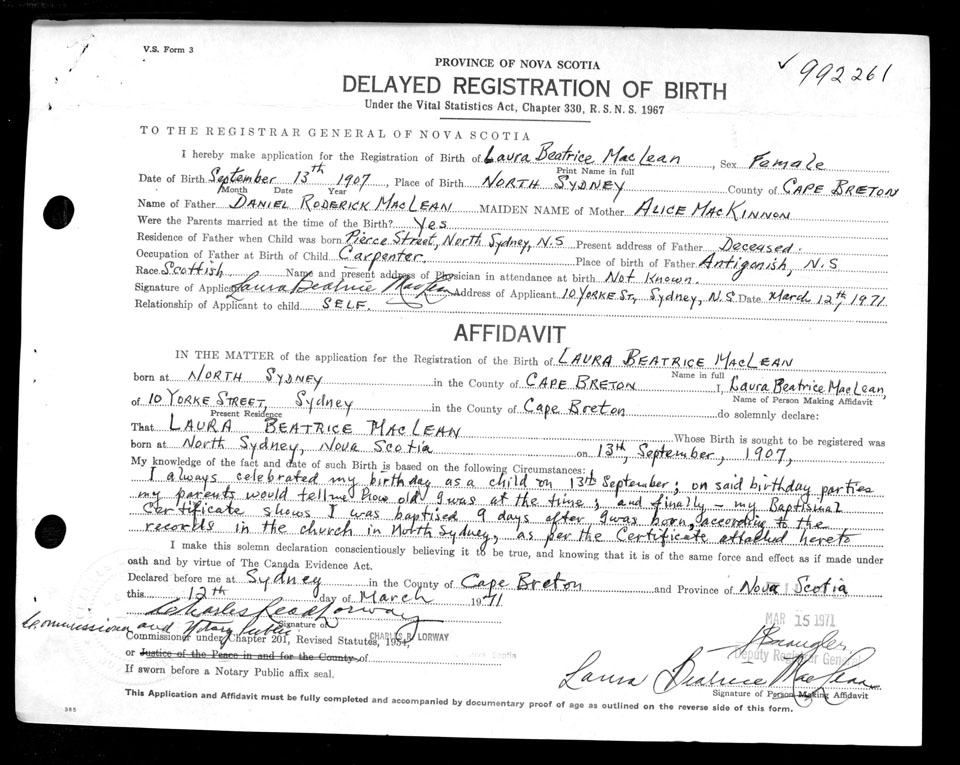 V.S. Form 3
PROVINCE OF NOVA SCOTIA
✓ 992261
DELAYED REGISTRATION OF BIRTH
Under the Vital Statistics Act, Chapter 330, R.S.N.S. 1967
TO THE REGISTRAR GENERAL OF NOVA SCOTIA
I hereby make application for the Registration of Birth of Laura Beatrice MacLean, Sex Female
Print Name in full
Date of Birth September 13th 1907, Place of Birth NORTH SYDNEY County of CAPE BRETON
Month Date Year
Name of Father DANIEL RODERICK MACLEAN MAIDEN NAME of Mother ALICE MACKINNON
Were the Parents married at the time of the Birth? Yes
Residence of Father when Child was born Pierce Street, North Sydney, N.S Present address of Father Deceased.
Occupation of Father at Birth of Child Carpenter. Place of birth of Father Antigonish, N.S
Race Scottish Name and present address of Physician in attendance at birth Not Known.
Signature of Applicant Laura Beatrice MacLean Address of Applicant 10 YORKE ST, Sydney, N.S. Date March 12th, 1971
Relationship of Applicant to child SELF.
AFFIDAVIT
IN THE MATTER of the application for the Registration of the Birth of LAURA BEATRICE MACLEAN
Name in full
born at NORTH SYDNEY in the County of CAPE BRETON I, Laura Beatrice MacLean,
Name of Person Making Affidavit
of 10 YORKE STREET, Sydney in the County of Cape Breton do solemnly declare:
Present Residence
That LAURA BEATRICE MACLEAN Whose Birth is sought to be registered was
born at North Sydney, Nova Scotia on 13th, September, 1907,
My knowledge of the fact and date of such Birth is based on the following Circumstances:
I always celebrated my birthday as a child on 13th September; on said birthday parties
my parents would tell me how old I was at the time; and finally - my Baptismal
Certificate shows I was baptised 9 days after I was born, according to the
records in the church in North Sydney, as per the Certificate attached hereto
I make this solemn declaration conscientiously believing it to be true, and knowing that it is of the same force and effect as if made under
oath and by virtue of The Canada Evidence Act.
Declared before me at Sydney in the County of Cape Breton and Province of Nova Scotia
this 12th day of March 1971
Charles Lorway
Signature of
MAR 15 1971
Commissioner and Notary Public
Commissioner under Chapter 201, Revised Statutes, 1954,
CHARLES R. LORWAY
Deputy Registrar General
or Justice of the Peace in and for the County of
If sworn before a Notary Public affix seal.
Laura Beatrice MacLean
Signature of Person Making Affidavit
This Application and Affidavit must be fully completed and accompanied by documentary proof of age as outlined on the reverse side of this form.
385